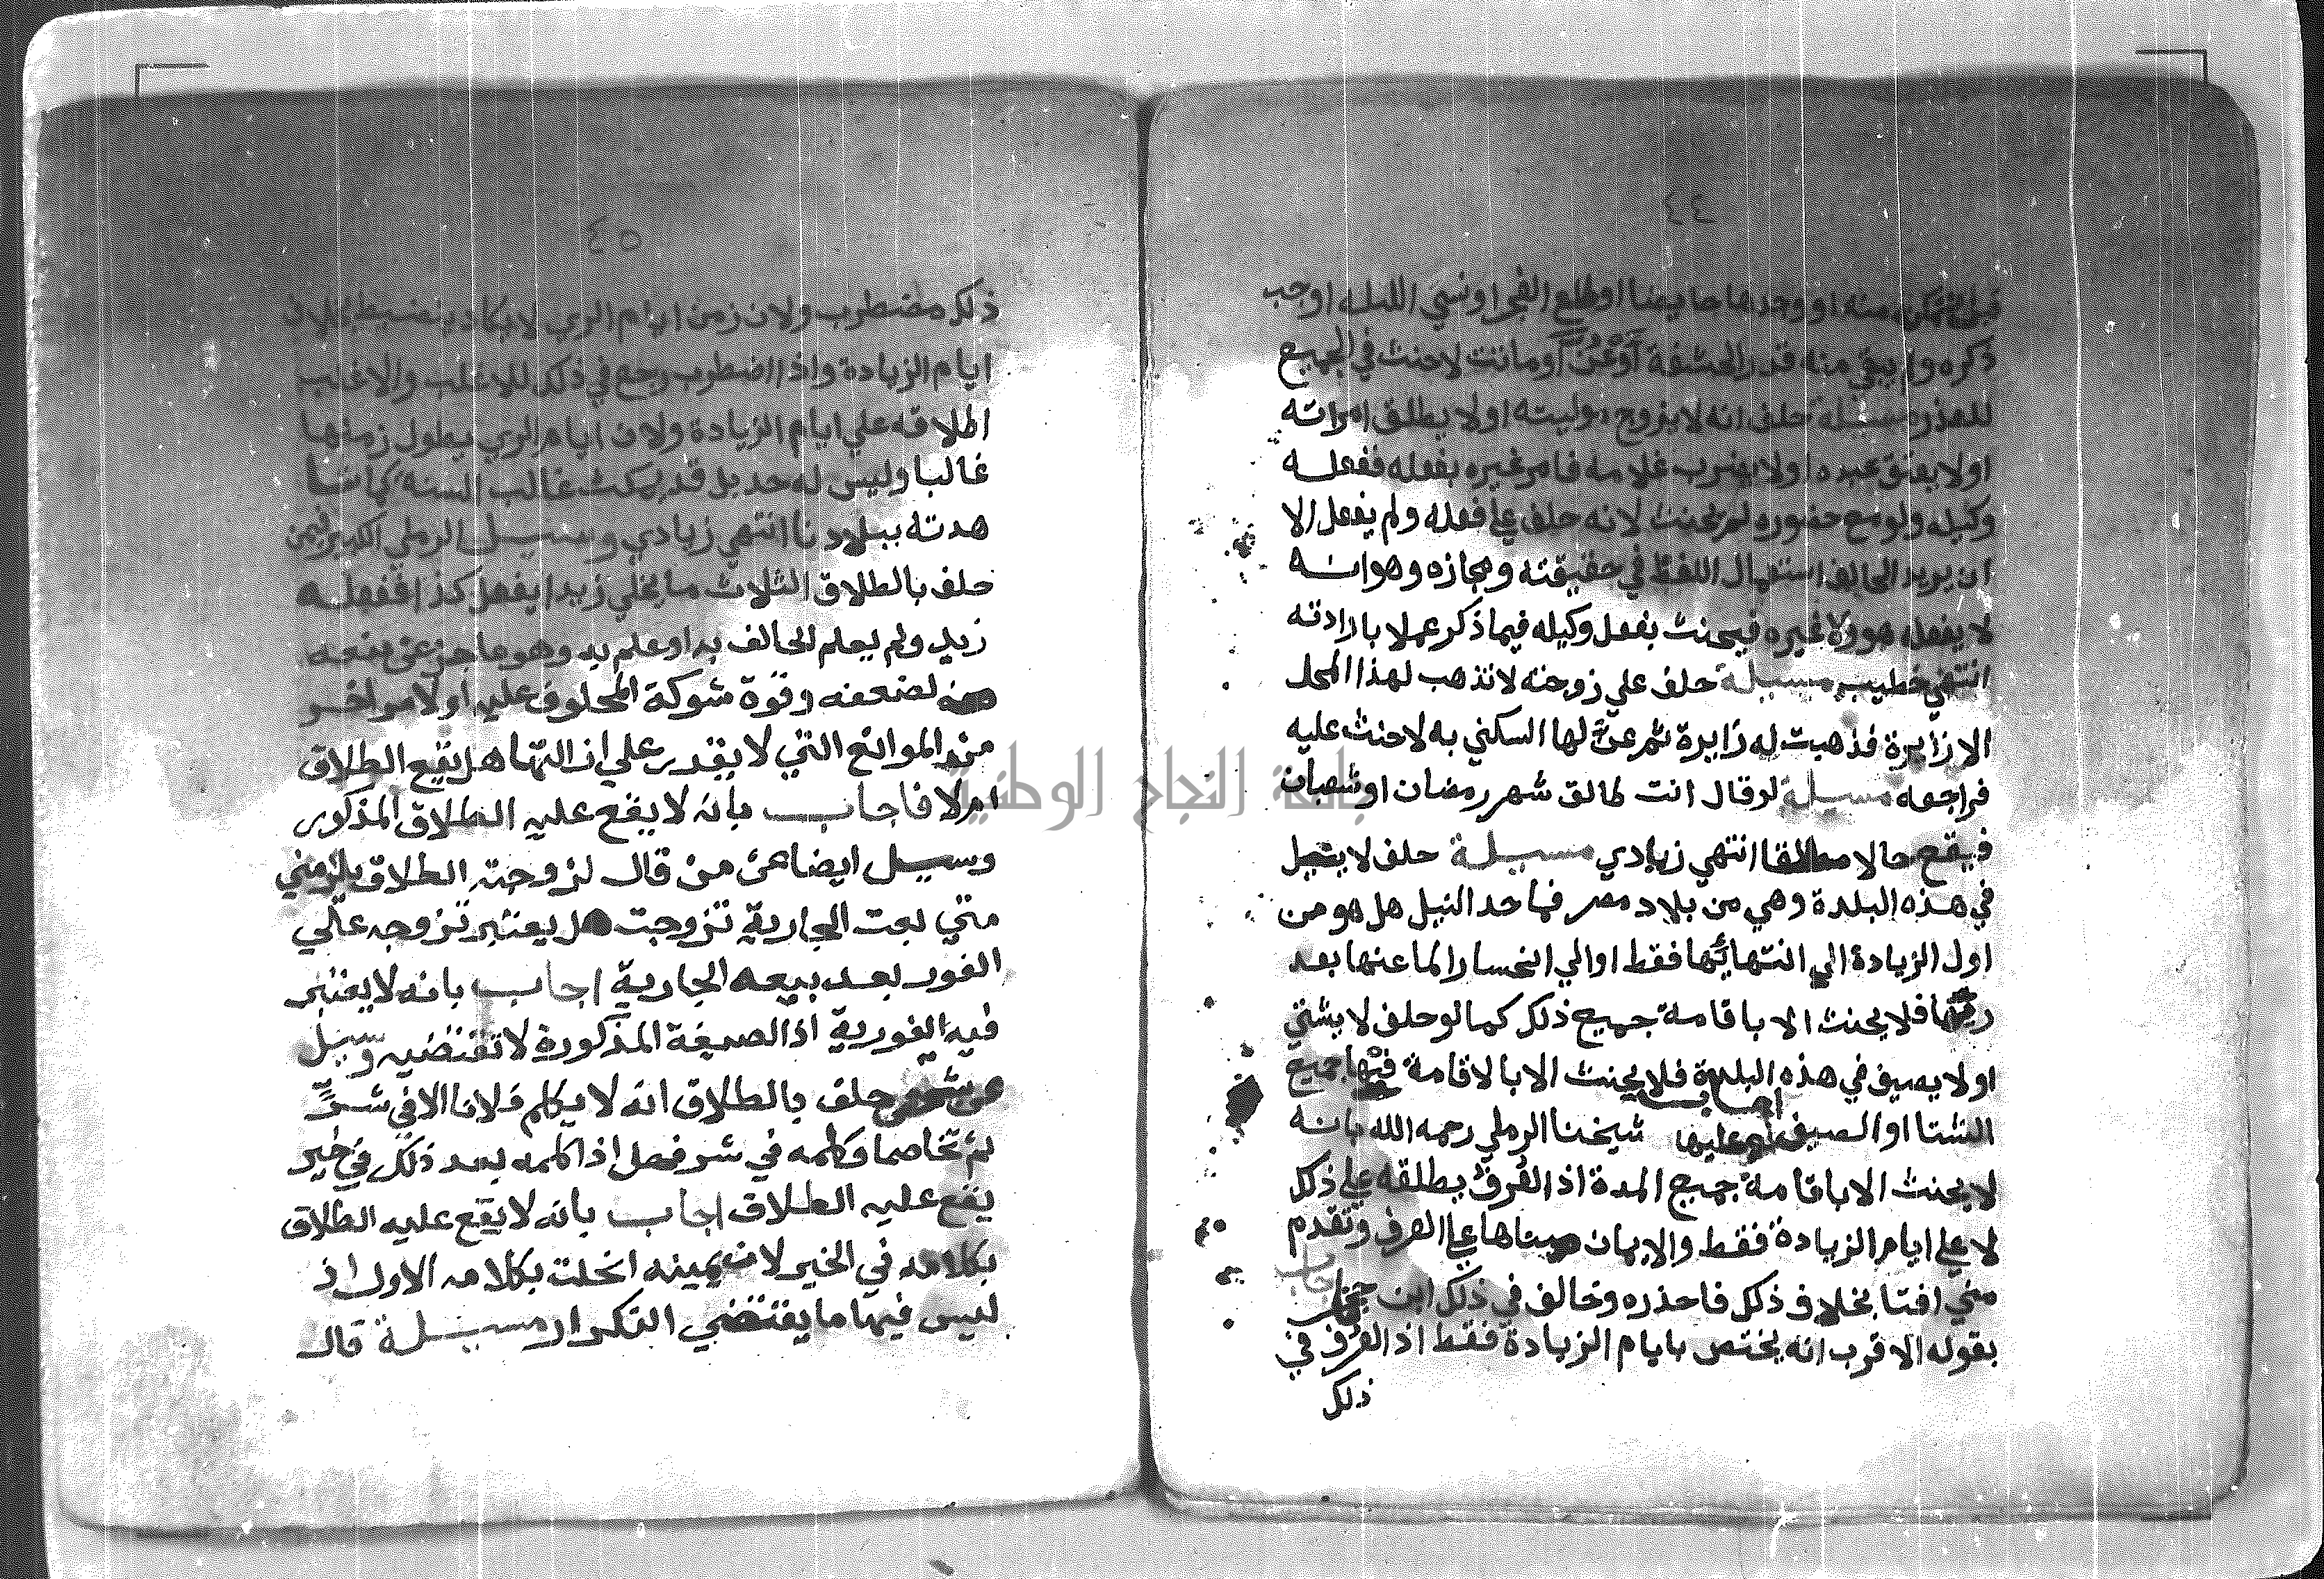 ٤٤
قبل تمكن منه او وجدها حايضا او طلع الفجر او نسي الليلة او جب
ذكره ولم يبق منه قدر الحشفة او عُنَّ او ماتت لا حنث في الجميع
للعذر مسيلة حلف انه لا يزوج موليته او لا يطلق امراته
او لا يعتق عبده او لا يضرب غلامه فامر غيره بفعله ففعله
وكيله ولو مع حضوره لم يحنث لانه حلف علي فعله ولم يفعل الا
ان يريد الحالف استعمال اللفظ في حقيقته ومجازه وهو انه
لا يفعله هو ولا غيره فيحنث بفعل وكيله فيما ذكر عملا بارادته
انتهي خطيب مسيلة حلف علي زوجته لا تذهب لهذا المحل
الا زايرة فذهبت له زايرة ثم عنَّ لها السكني به لا حنث عليه
فراجعه مسيلة لو قال انت طالق شهر رمضان او شعبان
فيقع حالا مطلقا انتهي زيادي مسيلة حلف لا ينيل
في هذه البلدة وهي من بلاد مصر فما حد النيل هل هو من
اول الزيادة الي انتهايها فقط او الي انحسار الما عنها بعد
ريها فلا يحنث الا باقامة جميع ذلك كما لو حلف لا يشتي
او لا يصيف في هذه البلدة فلا يحنث الا بالاقامة فيها جميع
الشتا او الصيف عليها اجاب شيخنا الرملي رحمه الله بانه
لا يحنث الا باقامة جميع المدة اذ العرف يطلقه علي ذلك
لا علي ايام الزيادة فقط والايمان مبناها علي العرف وتقدم
مني افتا بخلاف ذلك فاحذره وخالف في ذلك ابن
بقوله الاقرب انه يختص بايام الزيادة فقط اذ العرف في
ذلك
٤٥
ذلك مضطرب ولان زمن ايام الري لا يكاد ينضبط بخلاف
ايام الزيادة واذا اضطرب رجع في ذلك للاغلب والاغلب
اطلاقه علي ايام الزيادة ولان ايام الري يطول زمنها
غالبا وليس له حد بل قد يمكث غالب السنة كما شا
هدته ببلادنا انتهي زيادي وسيل الرملي الكبير فيمن
حلف بالطلاق الثلاث ما يخلي زيدا يفعل كذا ففعله
زيد ولم يعلم الحالف به او علم به وهو عاجز عن منعه
منه لضعفه وقوة شوكة المحلوف عليه او لامر اخر
من الموانع التي لا يقدر علي ازالتها هل يقع الطلاق
ام لا فاجاب بانه لا يقع عليه الطلاق المذكور
وسيل ايضا عن من قال لزوجته الطلاق يلزمني
متي بعت الجارية تزوجت هل يعتبر تزوجه علي
الفور بعد بيعه الجارية اجاب بانه لا يعتبر
فيه الفورية اذ الصيغة المذكورة لا تقتضيه وسيل
عن شخص حلف بالطلاق انه لا يكلم فلانا الا في شرٍّ
ثم تخاصما وكلمه في شر فهل اذا كلمه بعد ذلك في خير
يقع عليه الطلاق اجاب بانه لا يقع عليه الطلاق
بكلامه في الخير لان يمينه انحلت بكلامه الاول اذ
ليس فيها ما يقتضي التكرار مسيلة قال
جامعة النجاح الوطنية